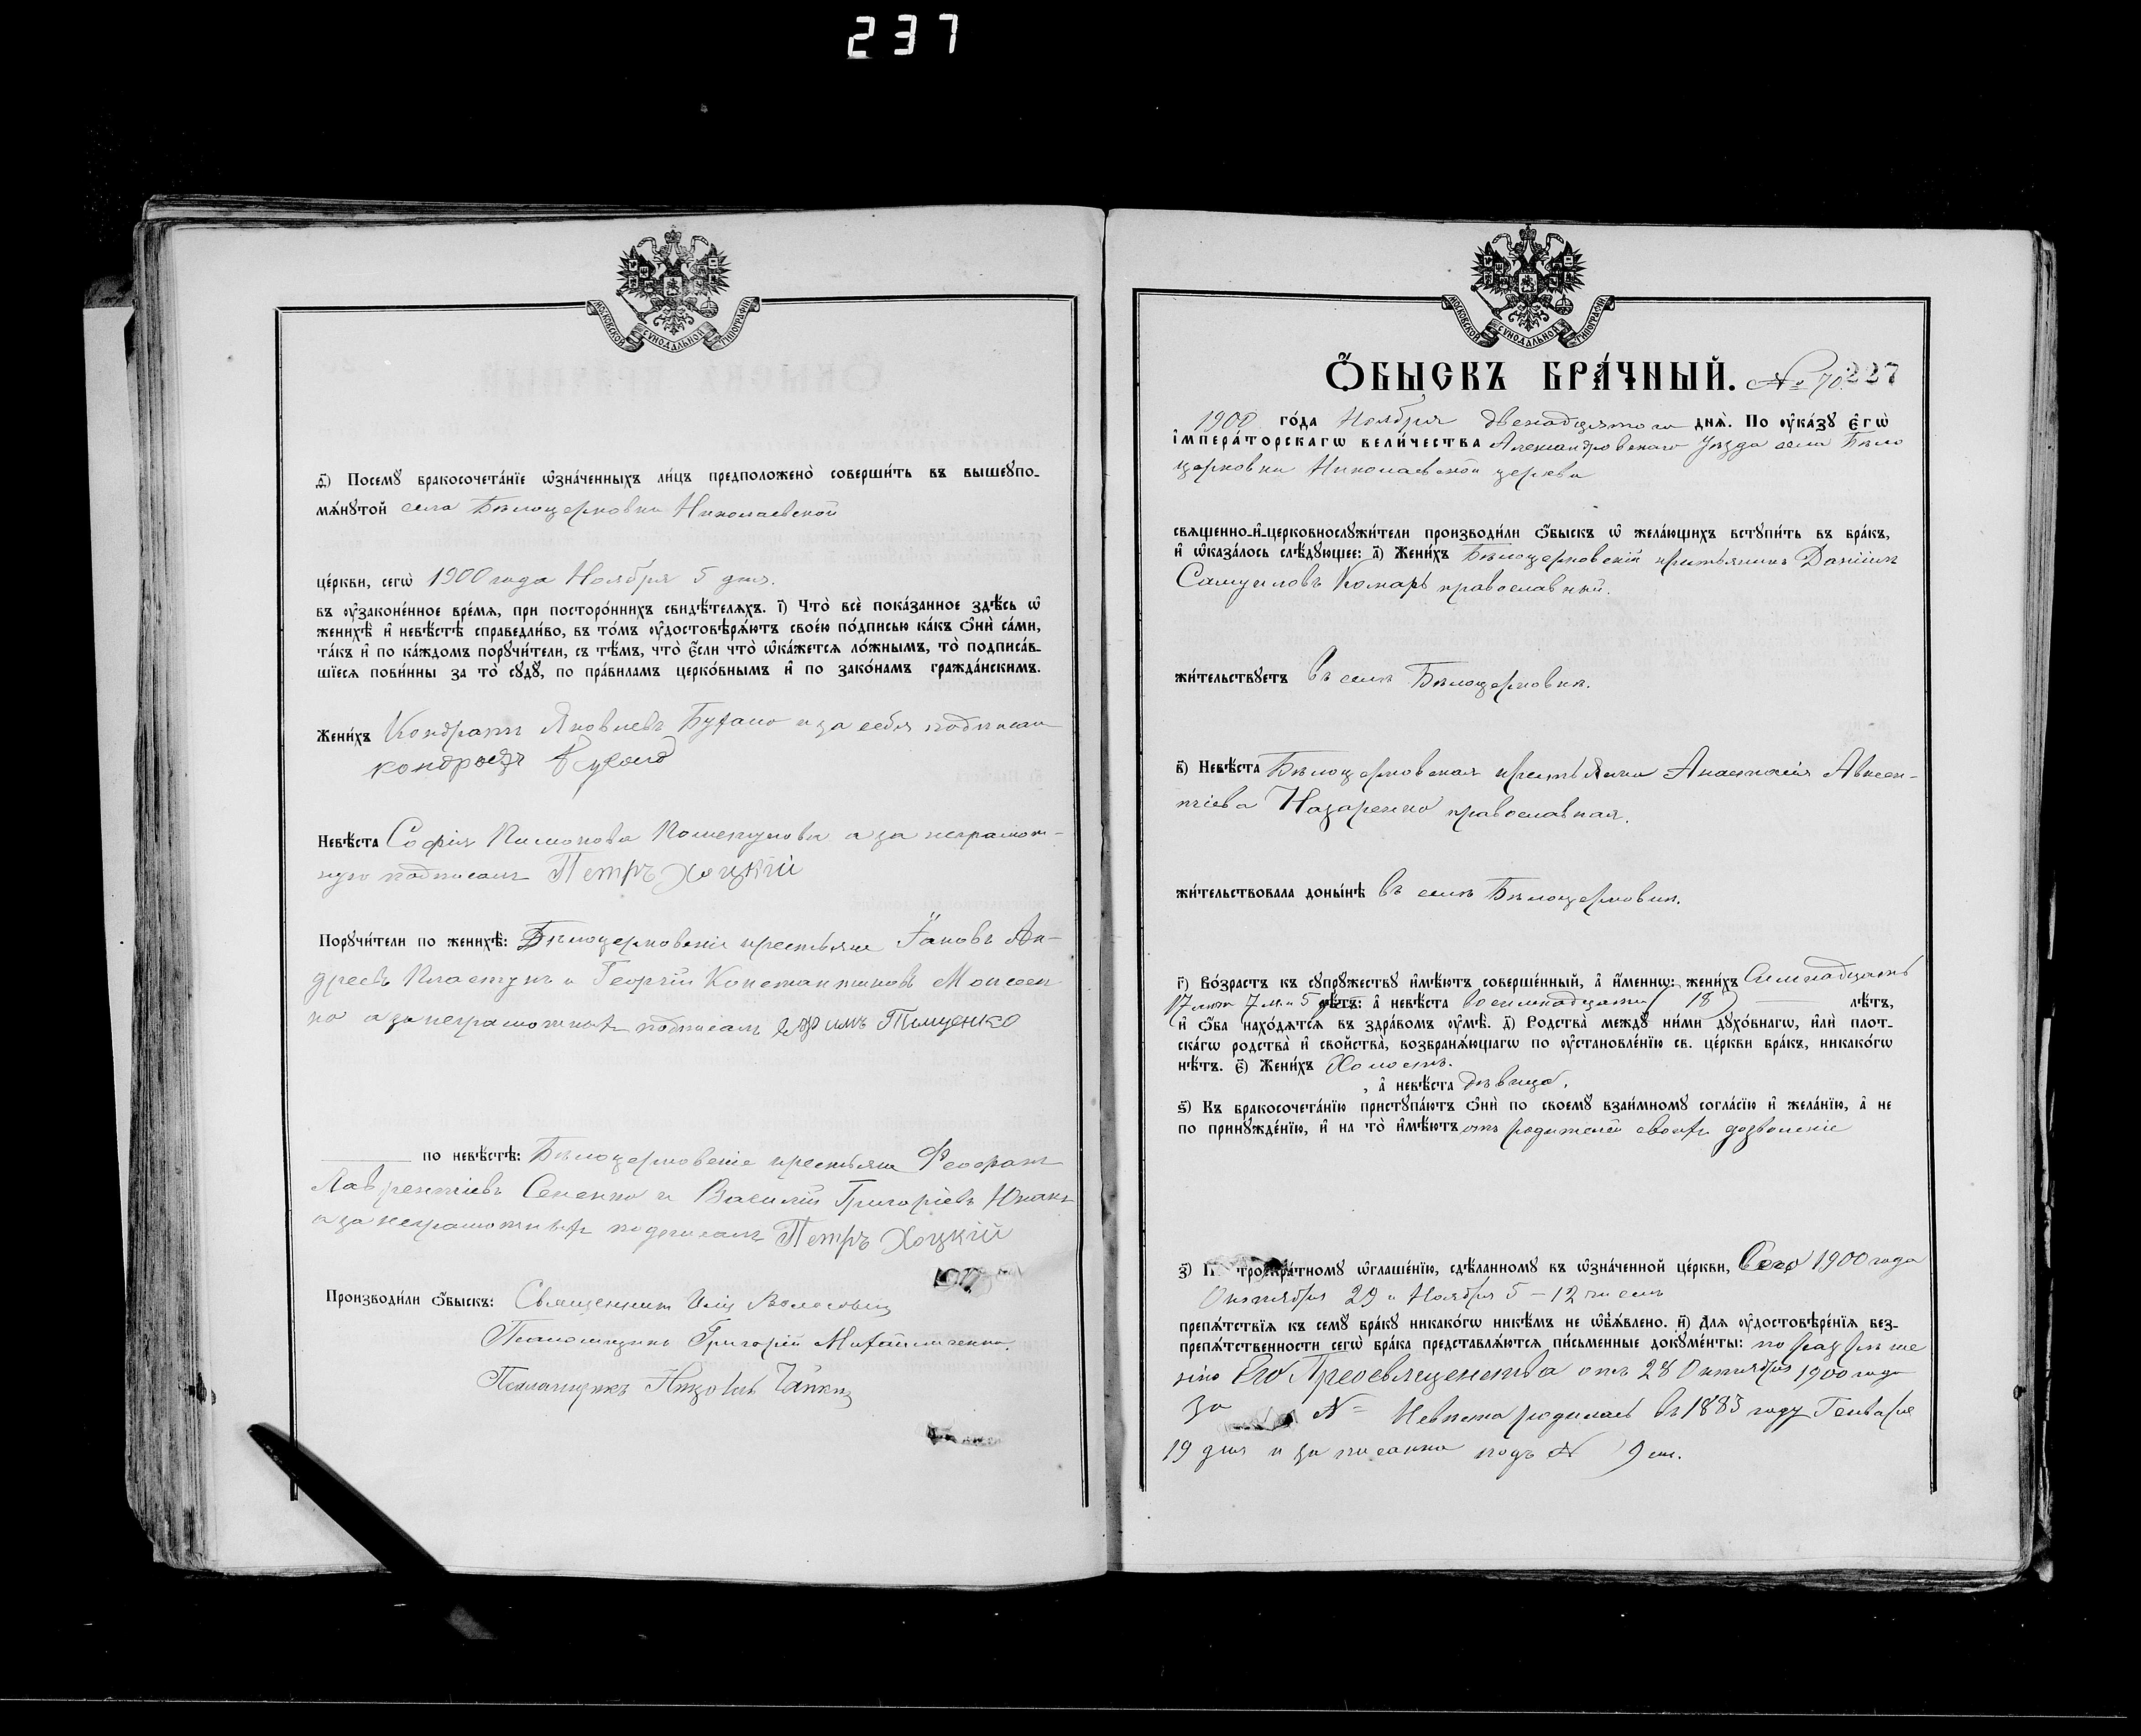 237
МОСКОВСКОЙ СѴНОДАЛЬНОЙ ТИПОГРАФІИ
д҃і) Посемꙋ бракосочета́нїе ѡ҆зна́ченныхъ ли́цъ предположено̀ соверши́ть въ вышеꙋпо-
мѧ́нꙋтой села Бѣлоцерковки Николаевской
це́ркви, сегѡ̀ 1900 года Ноября 5 дня.
въ ᲂу҆законе́нное вре́мѧ, при посторо́ннихъ свидѣ́телѧхъ. і҃) Что̀ всѐ пока́занное здѣ́сь ѡ҆
женихѣ̀ и҆ невѣ́стѣ справедли́во, въ то́мъ ᲂу҆достовѣрѧ́ютъ свое́ю по́дписью ка́къ ѻ҆нѝ са́ми,
та́къ и҆ по ка́ждомъ порꙋчи́тели, съ тѣ́мъ, что̀ є҆́сли что̀ ѡ҆ка́жетсѧ ло́жнымъ, то̀ подписа́в-
шїесѧ пови́нны за то̀ сꙋдꙋ̀, по пра́виламъ церко́внымъ и҆ по зако́намъ гражда́нскимъ.
Жени́хъ Кондратъ Яковлевъ Бугаио а за себя подписал
кондратъ
Невѣ́ста Софія Пимонова а за неграмот-
ную подписалъ Петръ Хоцкій
Порꙋчи́тели по женихѣ̀: Бѣлоцерковскіе крестьяне Іаковъ Ан-
дреевъ Пластунъ и Георгій Константиновъ Моисеен
ко а за неграмотныхъ подписалъ Ефимъ Тищенко
по невѣ́стѣ: Бѣлоцерковскіе крестьяне Феофанъ
Лаврентіевъ Сененко и Василій Григоріевъ Юнакъ
а за неграмотныхъ подписалъ Петръ Хоцкій
Производи́ли ѻ҆́быскъ: Священникъ Илія Волосовичъ
Псаломщикъ Григорій Михайличенко.
Псаломщикъ
МОСКОВСКОЙ СѴНОДАЛЬНОЙ ТИПОГРАФІИ
Ѻ҆́БЫСКЪ БРА́ЧНЫЙ. № 70. 227
1900 го́да Ноября двенадцятого днѧ̀. По ᲂу҆ка́зꙋ є҆гѡ̀
и҆мпера́торскагѡ вели́чества Александровскаго Уѣзда села Бѣло
церковки Николаевской церкви
свѧщенно-и҆-церковнослꙋжи́тели производи́ли ѻ҆́быскъ ѡ҆ жела́ющихъ встꙋпи́ть въ бра́къ,
и҆ ѡ҆каза́лось слѣ́дꙋющее: а҃) Жени́хъ Бѣлоцерковскій крестьянинъ Даніилъ
Самуиловъ Комаръ православный.
жи́тельствꙋетъ въ селѣ Бѣлоцерковкѣ.
в҃) Невѣ́ста Бѣлоцерковская крестьянка Анастасія Авксен-
тіева Назаренко православная.
жи́тельствовала доны́нѣ въ селѣ Бѣлоцерковкѣ.
г҃) Во́зрастъ къ сꙋпрꙋ́жествꙋ и҆мѣ́ютъ соверше́нный, а҆ и҆́меннѡ: жени́хъ Семнадцать
17 лѣтъ 7 м. и 5 лѣ́тъ: а҆ невѣ́ста восемнадцать (18) лѣ́тъ,
и҆ ѻ҆́ба нахо́дѧтсѧ въ здра́вомъ ᲂу҆мѣ̀. д҃) Родства̀ междꙋ̀ ни́ми дꙋхо́внагѡ, и҆лѝ плот-
ска́гѡ родства̀ и҆ сво́йства, возбранѧ́ющагѡ по ᲂу҆становле́нїю св. це́ркви бра́къ, никако́гѡ
нѣ́тъ. є҃) Жени́хъ Холостъ.
, а҆ невѣ́ста дѣвица.
ѕ҃) Къ бракосочета́нїю пристꙋпа́ютъ ѻ҆нѝ по своемꙋ̀ взаи́мномꙋ согла́сїю и҆ жела́нїю, а҆ не
по принꙋжде́нїю, и҆ на то̀ и҆мѣ́ютъ отъ родителей своихъ дозволеніе
з҃) П трокра́тномꙋ ѡ҆глаше́нїю, сдѣ́ланномꙋ въ ѡ҆зна́ченной це́ркви, Сего 1900 года
Октября 29 и Ноября 5 – 12 чиселъ
препѧ́тствїѧ къ семꙋ̀ бра́кꙋ никако́гѡ никѣ́мъ не ѡ҆б̾ѧ́влено. и҃) Длѧ ᲂу҆достовѣре́нїѧ без-
препѧ́тственности сегѡ̀ бра́ка представлѧ́ютсѧ пи́сьменные докꙋме́нты: по разрѣше
нію Его Преосвященства отъ 28 Октября 1900 года
За № Невѣста родилась въ 1883 году Генваря
19 дня и записана подъ № 9 см.